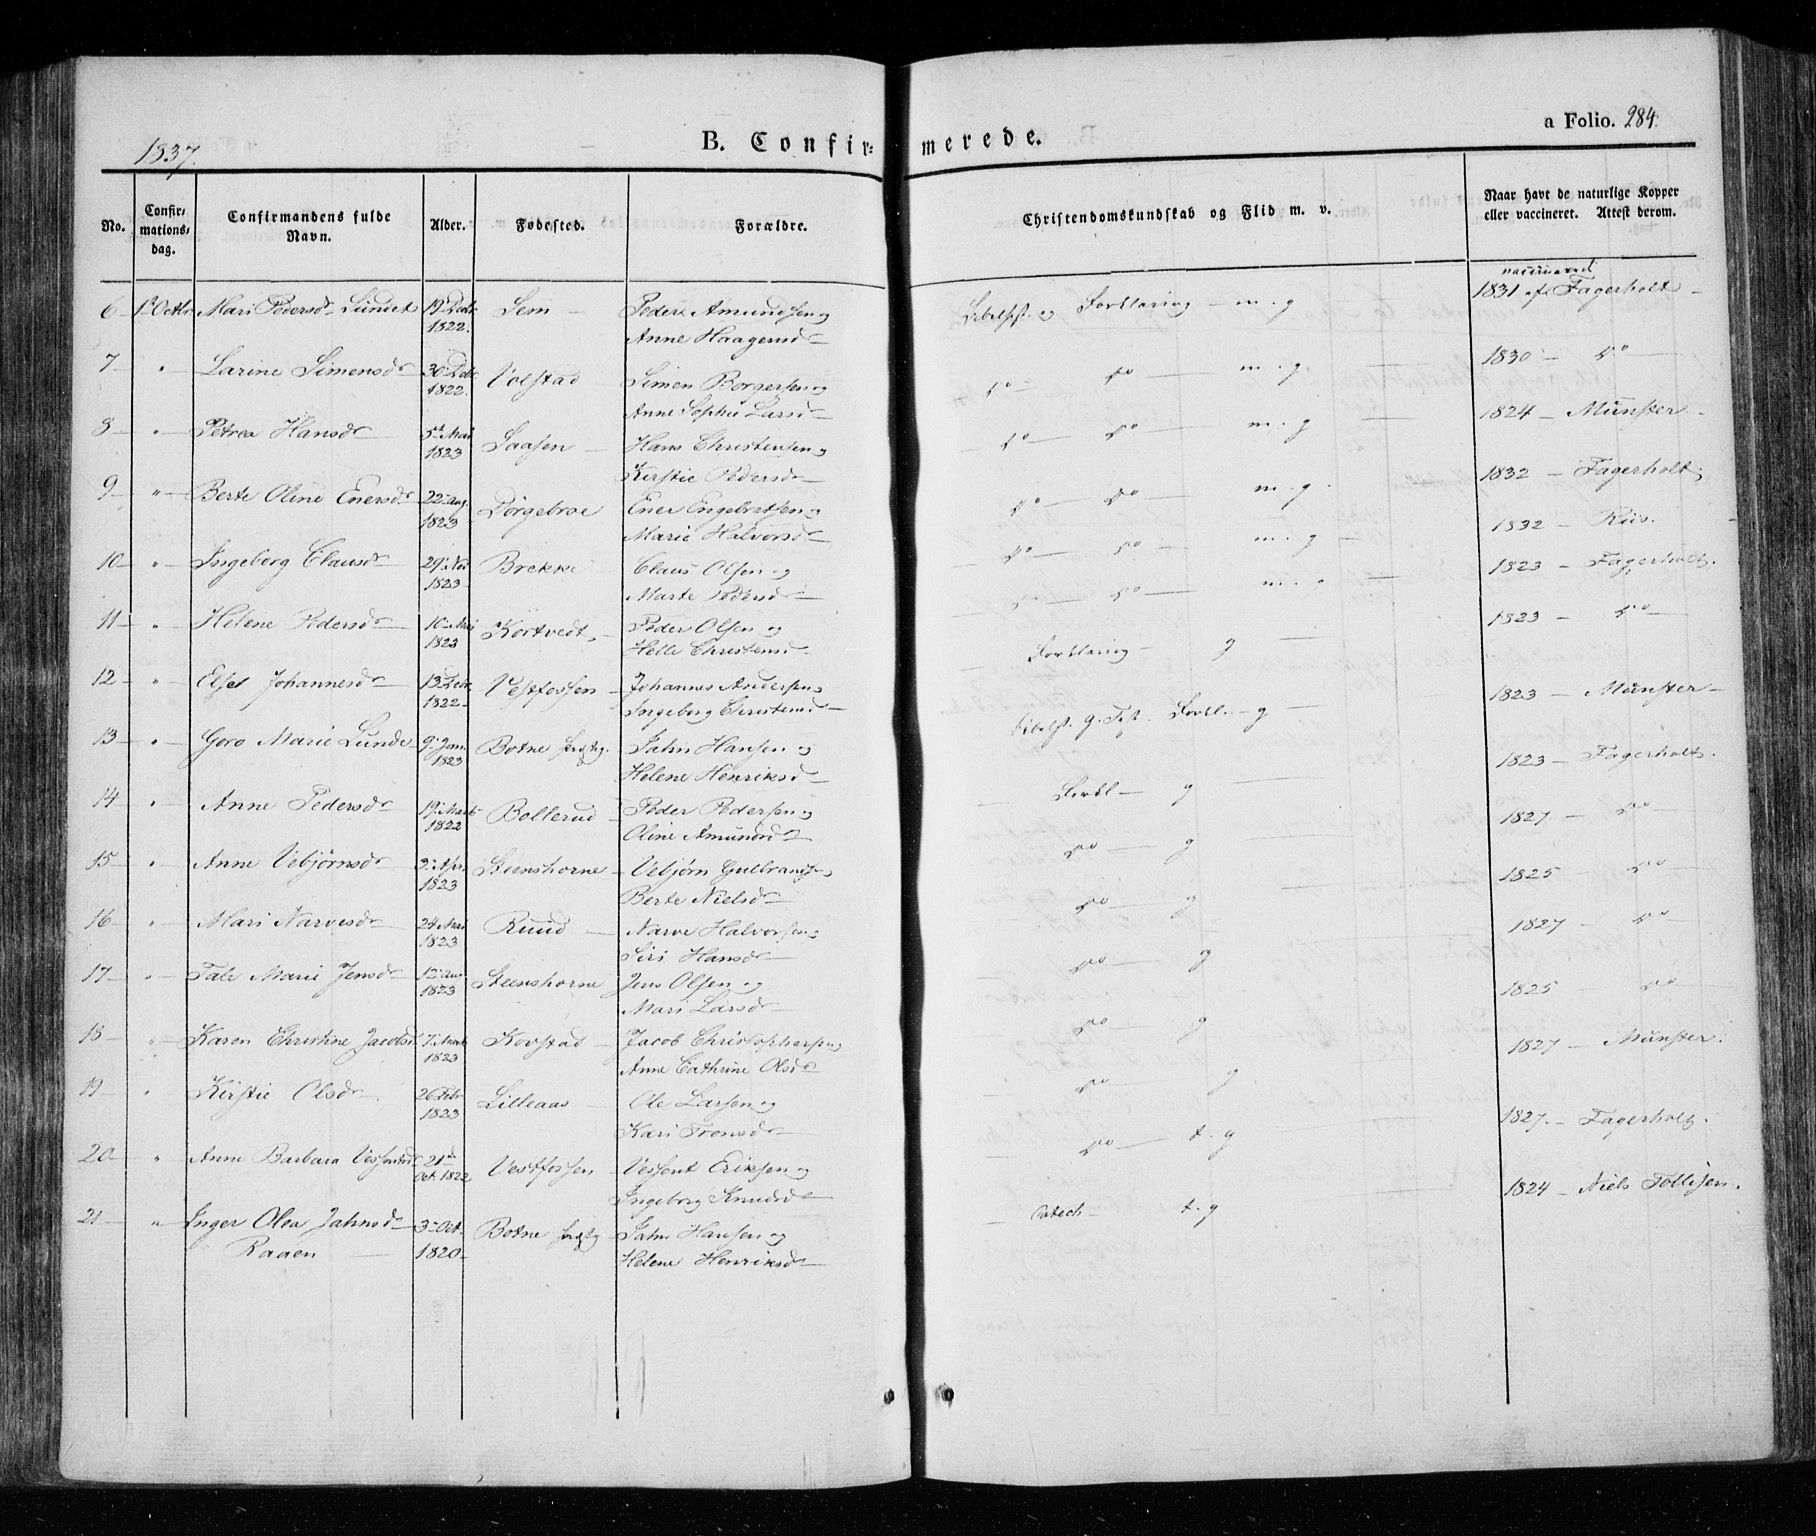 1837.
B. Confirmerede.
a Folio. 284.
No.
Confirmationsdag.
Confirmandens fulde Navn.
Alder.
Fødested.
Forældre.
Christendomskundskab og Flid m. v.
Naar havt de naturlige Kopper eller vaccineret. Attest derom.
6 Mari Pedersd Lundet 19 1822. Sem Peder Amundsen og Forklaring m. g vaccinered 1831 af Fagerholt
Anne Haagensd
7 " Larine Simensd 30 1822. Volstad Simen Borgersen og do do m. g. 1830 do
Anne Sophie Larsd
8 " Petrea Hansd 5te Mai 1823 Saasen Hans Christensen og do do m. g 1824 Munster
Kirstie Pedersd
9 " Berte Oline Enersd 22 Aug. 1823 Dørgebroe Ener Engebretsen og do do m. g. 1832 Fagerholt
Marie Halvorsd
10 " Ingeborg Clausd 29 Nov 1823 Brekke Claus Olsen og do do m. g 1832 Riis.
Marte Pedersd
11 " Helene Pedersd 10 Mai 1823 Kortvedt Peder Olsen og do do m. g 1823 Fagerholt.
Helle Christensd
12 " Else Johannesd 13 1822 Vestfossen Johannes Andersen og Forklaring g 1823 do
Ingeborg Christensd
13 " Goro Marie Lunde 9 Jan. 1823 Botne Jahn Hansen og Forkl. g 1823 Munster
Helene Henriksd
14 " Anne Pedersd 19 Marts 1822 Bollerud Peder Pedersen og Forkl g 1823 Fagerholt.
Oline Amundsd
15 " Anne Vebjørnsd 3 Apr. 1823 Steenshorne Vebjørn Gulbrandsen og do g 1827 do
Berte Nielsd
16 " Mari Narvesd 24 Mai 1823 Ruud Narve Halvorsen og do g 1825 do
Siri Hansd
17 " Tale Marie Jensd 12 1823 Steenshorne Jens Olsen og do g 1827 do
Mari Larsd
18 " Karen Christine Jacobsd 7 Marts 1823 Korstad Jacob Christophersen og do g 1825 do
Anne Cathrine Olsd
19 " Kirstie Olsd. 26 Febr 1823 Lilleaas Ole Larsen og do g 1827 Munster.
Kari Tronsd
20 " Anne Barbara 21d Oct. 1822 Vestfossen Erik­sen og do t. g 1827. Fagerholt.
Ingeborg Knudsd
21 " Inger Olea Jahnsd 3 Oct. 1820 Botne Jahn Hansen og Catech t. g 1824 Niels Tollisen.
Raaen Helene Henriksd